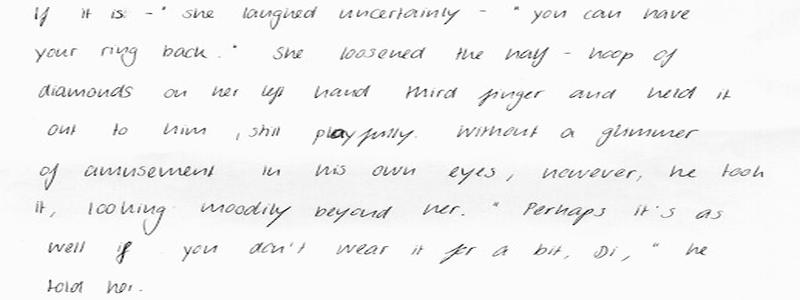 If it is -" she laughed uncertainly - "you can have
your ring back." She loosened the half-hoop of
diamonds on her left hand third finger and held it
out to him, still playfully. Without a glimmer
of amusement in his own eyes, however, he took
it, looking moodily beyond her. "Perhaps it's as
well if you don't wear it for a bit, Di," he
told her.